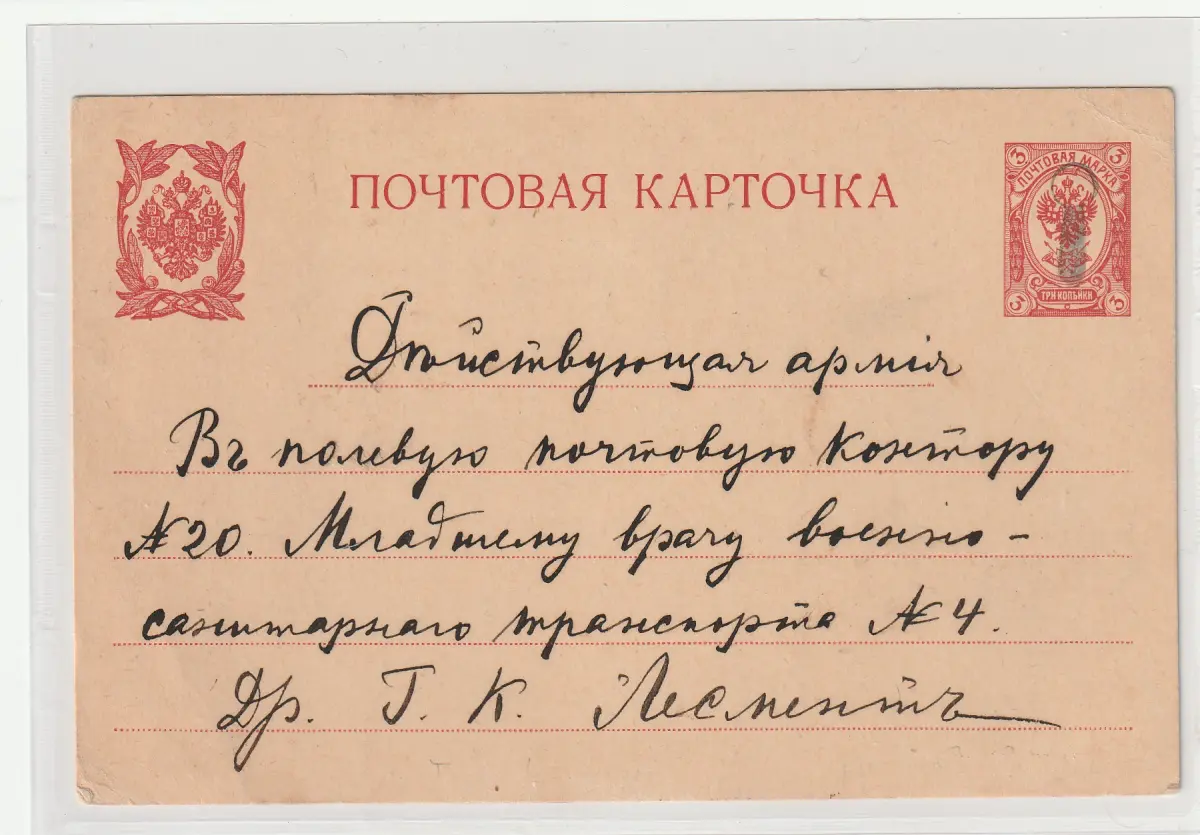 ПОЧТОВАЯ КАРТОЧКА
3 3
ПОЧТОВАЯ МАРКА
ТРИ КОПѢЙКИ
3 3
Дѣйствующая армія
Въ полевую почтовую контору
№ 20. Младшему врачу военно-
санитарнаго транспорта № 4.
Др. Г. К. Лесментъ